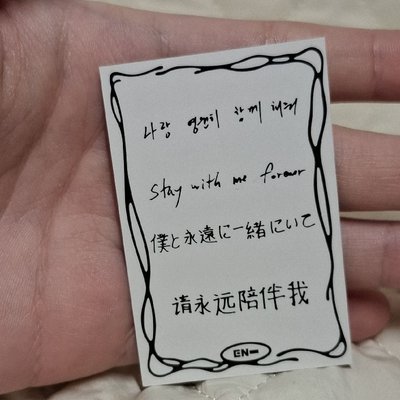 나랑 영원히 함께 해줘
stay with me forever
僕と永遠に一緒にいて
请永远陪伴我
EN-